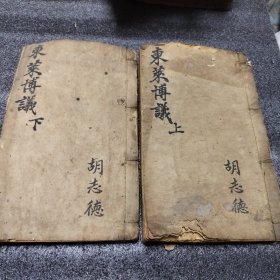 東萊博議上
胡志德
東萊博議下
胡志德